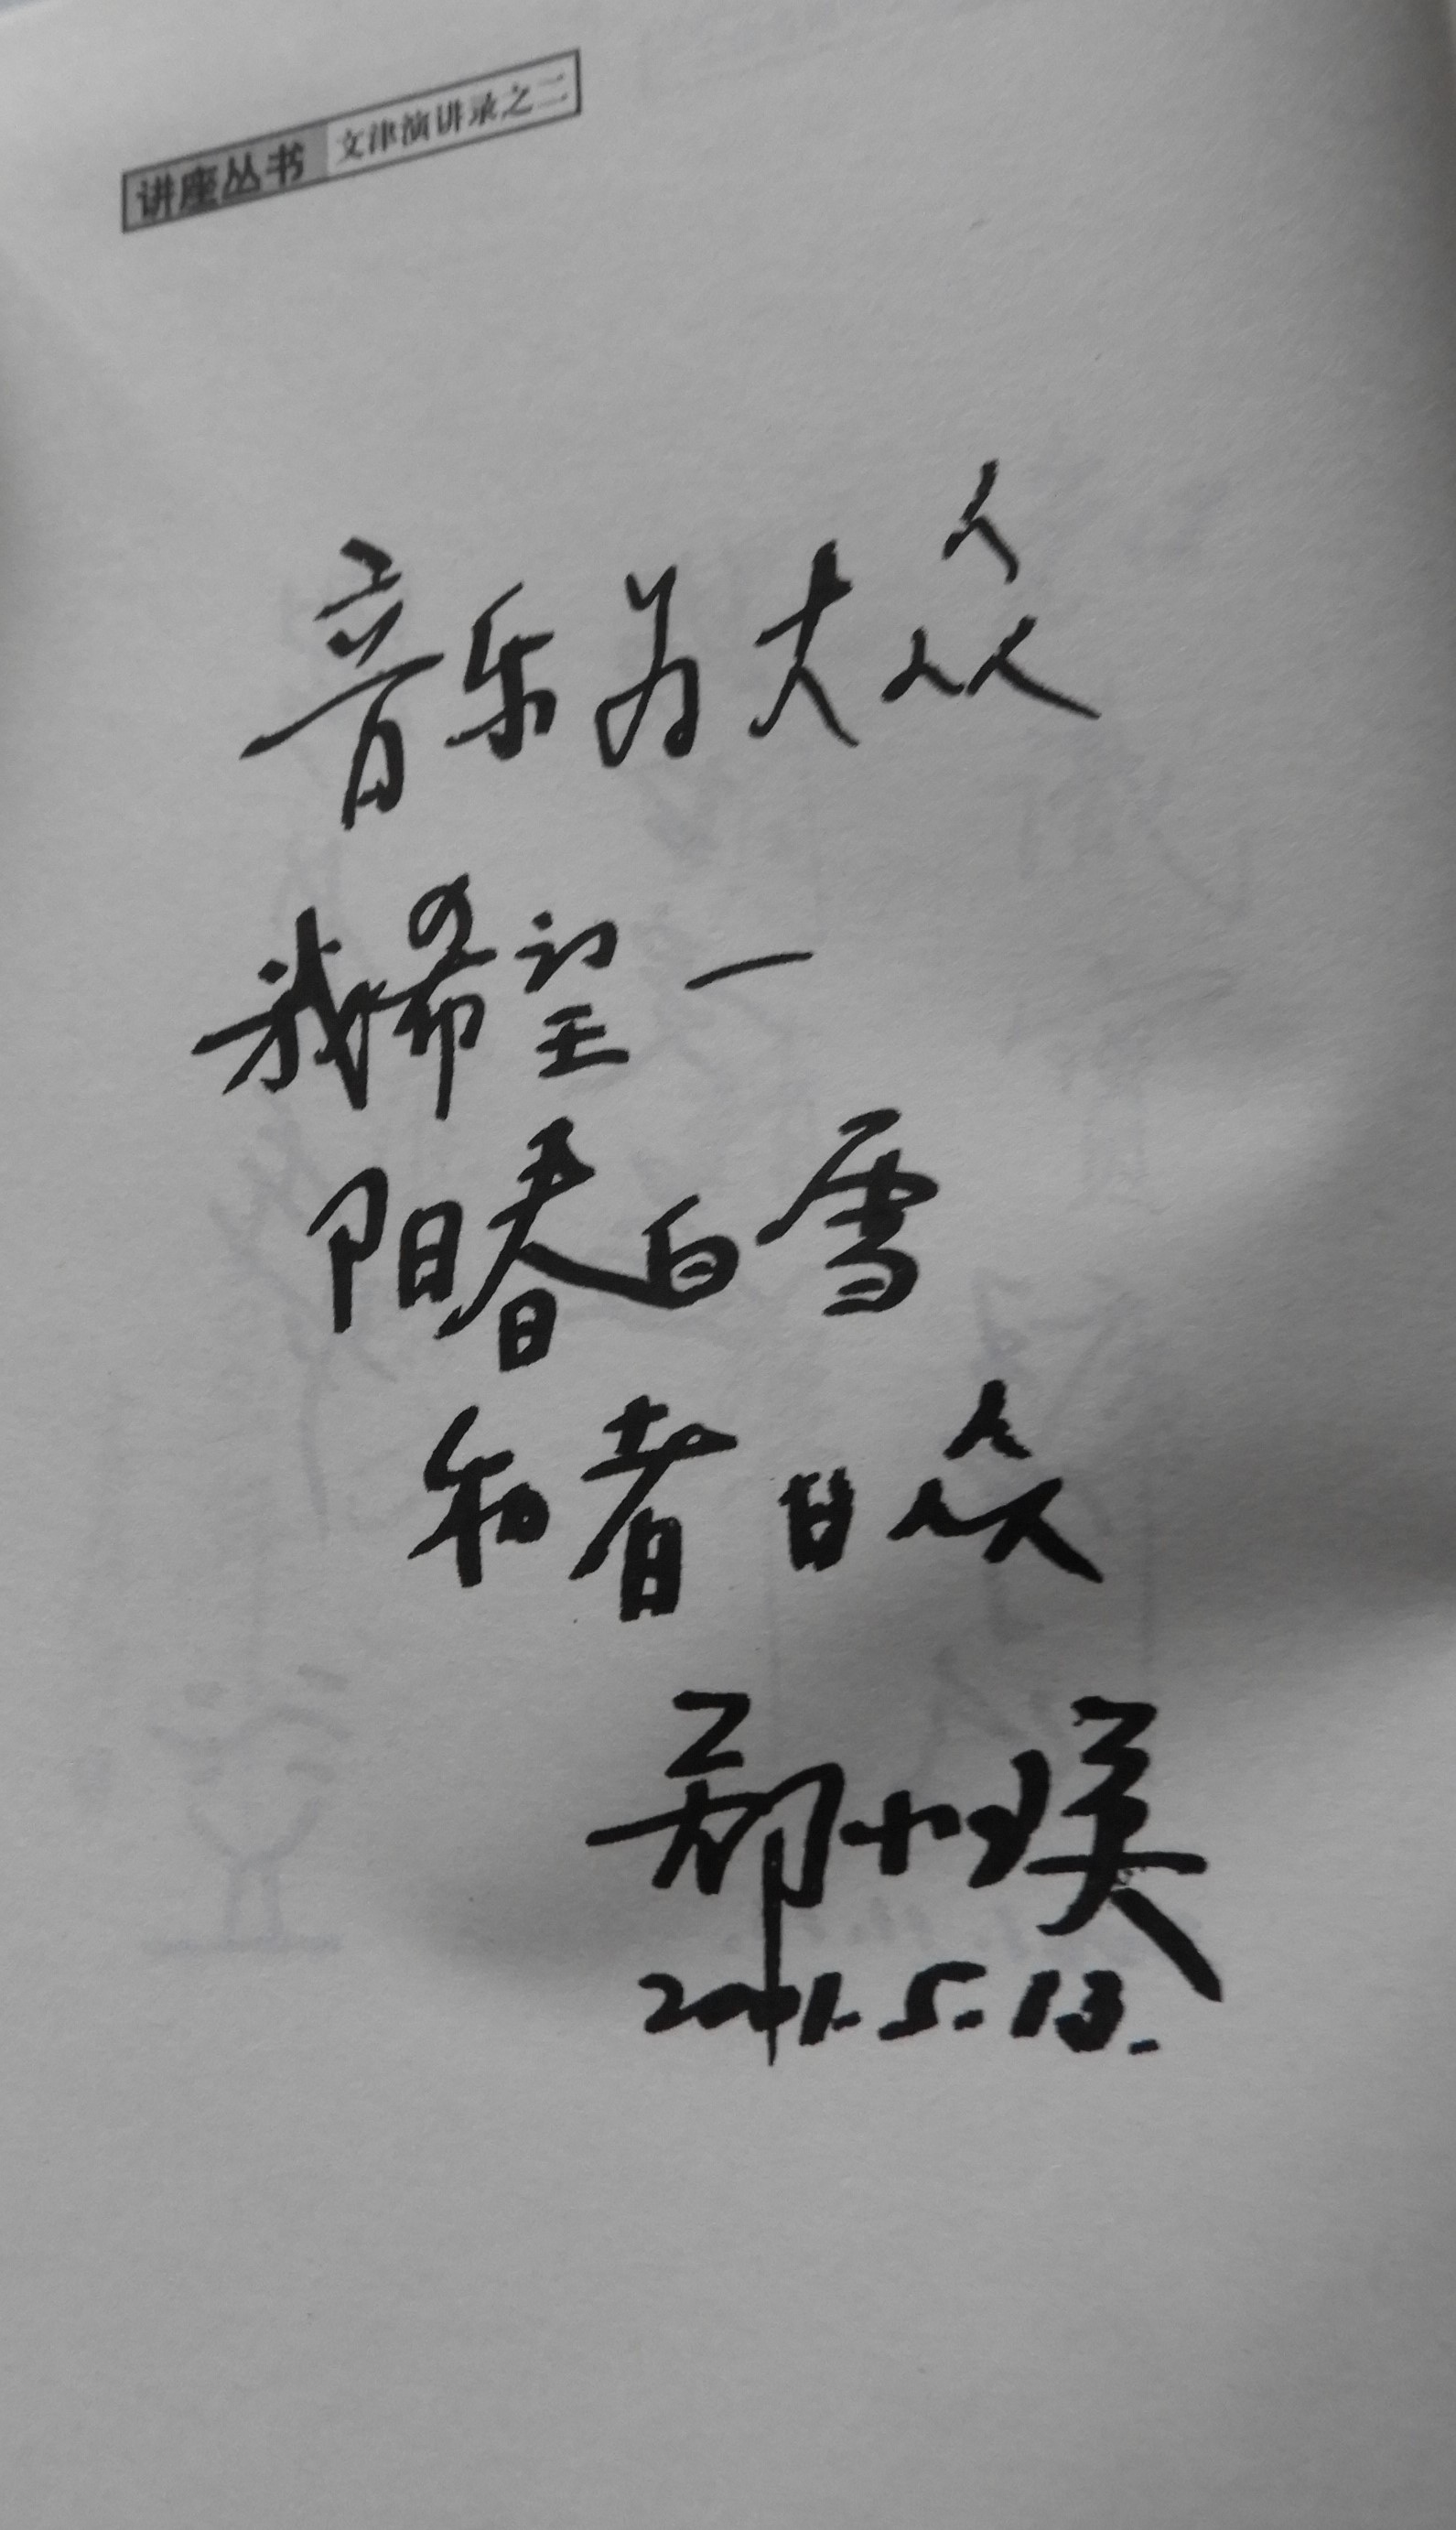 讲座丛书 文津演讲录之二
音乐为大众
我希望一
阳春白雪
和者日众
郑小瑛
2001.5.13.